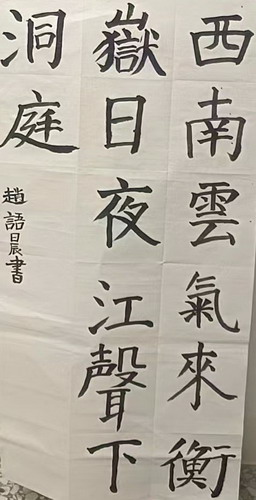 西南雲氣來衡
嶽日夜江聲下
洞庭
趙語晨書